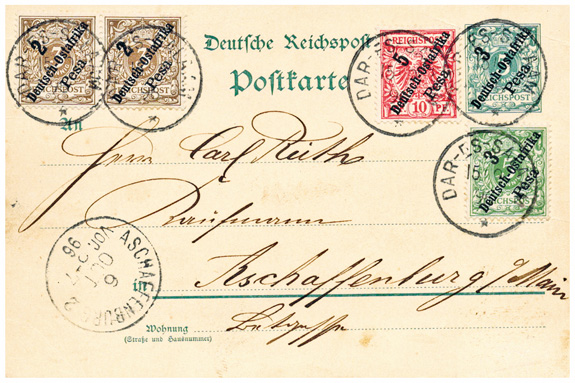 2 Deutsch-Ostafrika Pesa
REICHSPOST
2 Deutsch-Ostafrika Pesa
REICHSPOST
Deutsche Reichspost
Postkarte
REICHSPOST
5 Deutsch-Ostafrika Pesa
10 PF
3 Deutsch-Ostafrika Pesa
REICHSPOST
DAR-ES-S
3 Deutsch-Ostafrika Pesa
An
Herrn Carl Reith
Kaufmann
ASCHAFFENBURG 2
96
in
Aschaffenburg a/Main
Wohnung
(Straße und Hausnummer)